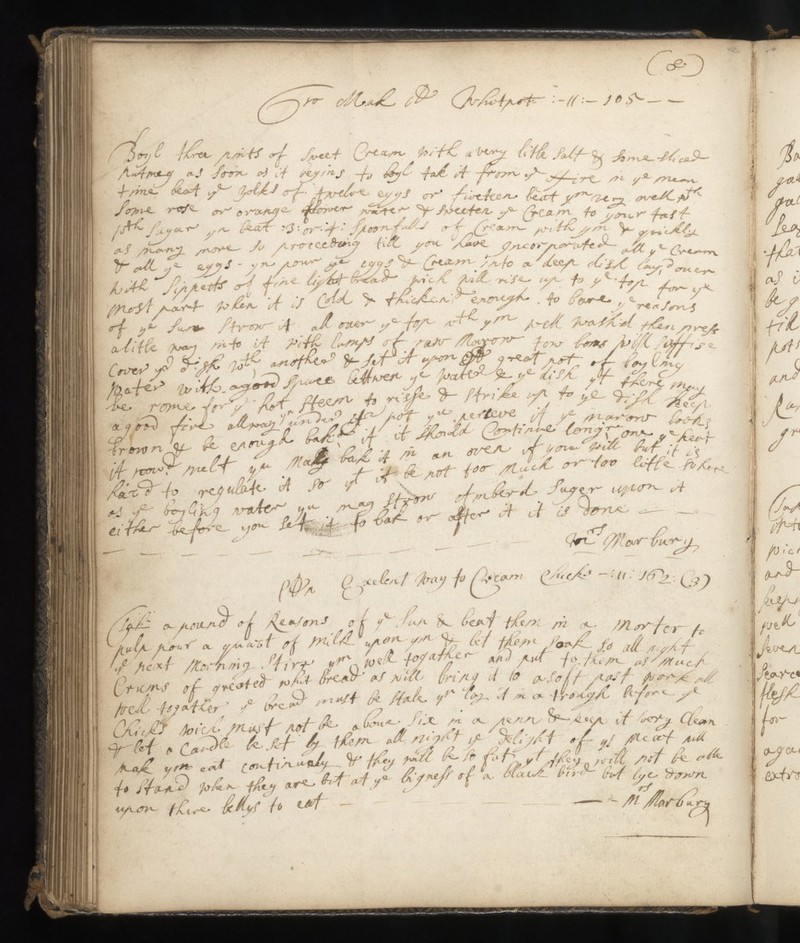 (8)
To Mak A Whitpott :-11:- 105 - -
Boyl three pints of Sweet Cream with a very litle Salt & Some sliced
Nutmeg as Soon as it begins to boyl tak it from ye fire in ye mean
time beat ye yolks of twelve eggs or fiveteen beat ym very well wth
Some rose or orange flower water & Sweeten ye Cream to your tast
wth Sugar yn beat :3: or :4: Spoonfulls of Cream with ym & quickly
as many more So proceeding till you have Incorporated all ye Cream
& all ye eggs - yn pour ye eggs & Cream into a deep dish lay'd over
with Sippetts of fine light bread wich will rise up to ye top for ye
most part when it is Cold & thicken'd enough to bare ye reasons
of ye Sun Strow it all over ye top wth ym well wash'd then press
a litle way into it with lumps of raw Marow tow bons will Suffise
Cover yr dish wth another & Set it upon A great pot of boyling
water with a good Space bettwen ye water & ye dish yt there may
be rome for ye hot Steem to risse & Strike up to ye dish keep
a good fire allway under ye pot yn perceve if ye marow looks
brown & be enough bak'd if it Should Continue longr one ye heat
it would melt yu May bak it in an oven if you will but it is
hard to regulate it So yt it be not too much or too litle where
as ye boyling water yu may Strow Amberd Suger upon it
either before you Set it to bak or after it it is done - -
Mrs Marbury
An Exelent way to Cream Chicks -:11: 162: (3)
Tak a pound of Reasons of ye Sun & beat them in a Morter to
pulp pour a quart of Milk upon ym & let them Soak So all night
ye next Morning Stirr ym well togather and put to them as Much
Crums of greated whit bread as will bring it to a soft past work all
well togather ye bread must be Stale yn lay it in a trough before ye
Chicks wich must not be above Six in a penn & keep it very Clean
& let a Candle be Set by them all night ye delight of ys meat will
mak ym eat continualy & they will be so fatt yt they will not be able
to Stand when they are but at ye bigness of a black bird but lye down
upon thire bellys to eat -
- Mrs Marbury